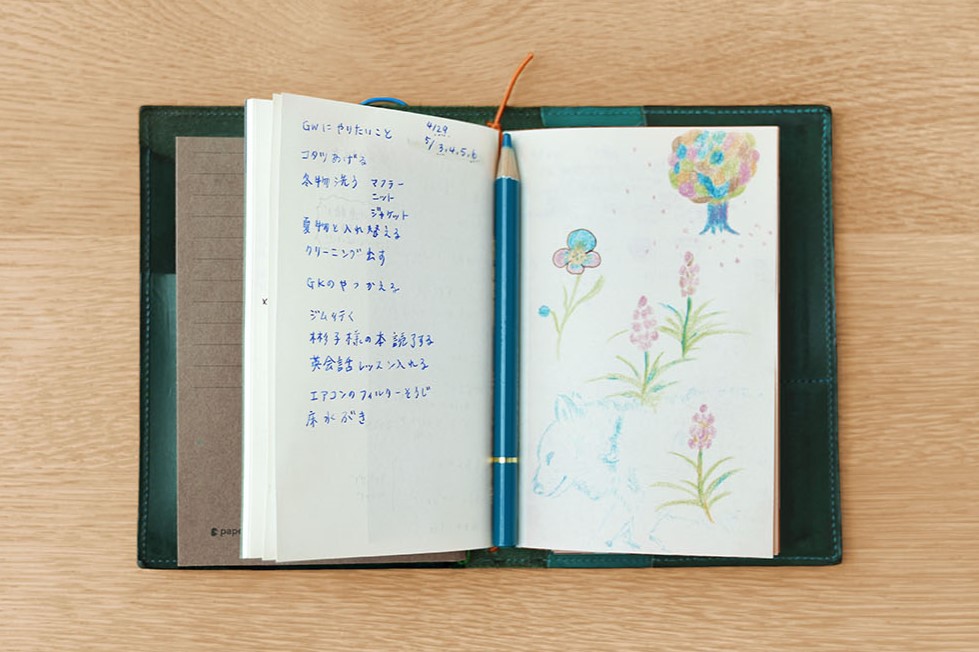 GWにやりたいこと 4/29
5/3,4,5,6
コタツあげる
冬物洗う マフラー
ニット
ジャケット
夏物と入れ替える
クリーニング出す
GKのやつかえる
ジム行く
彬子様の本読了する
英会話レッスン入れる
エアコンのフィルターそうじ
床水ぶき
x
pape